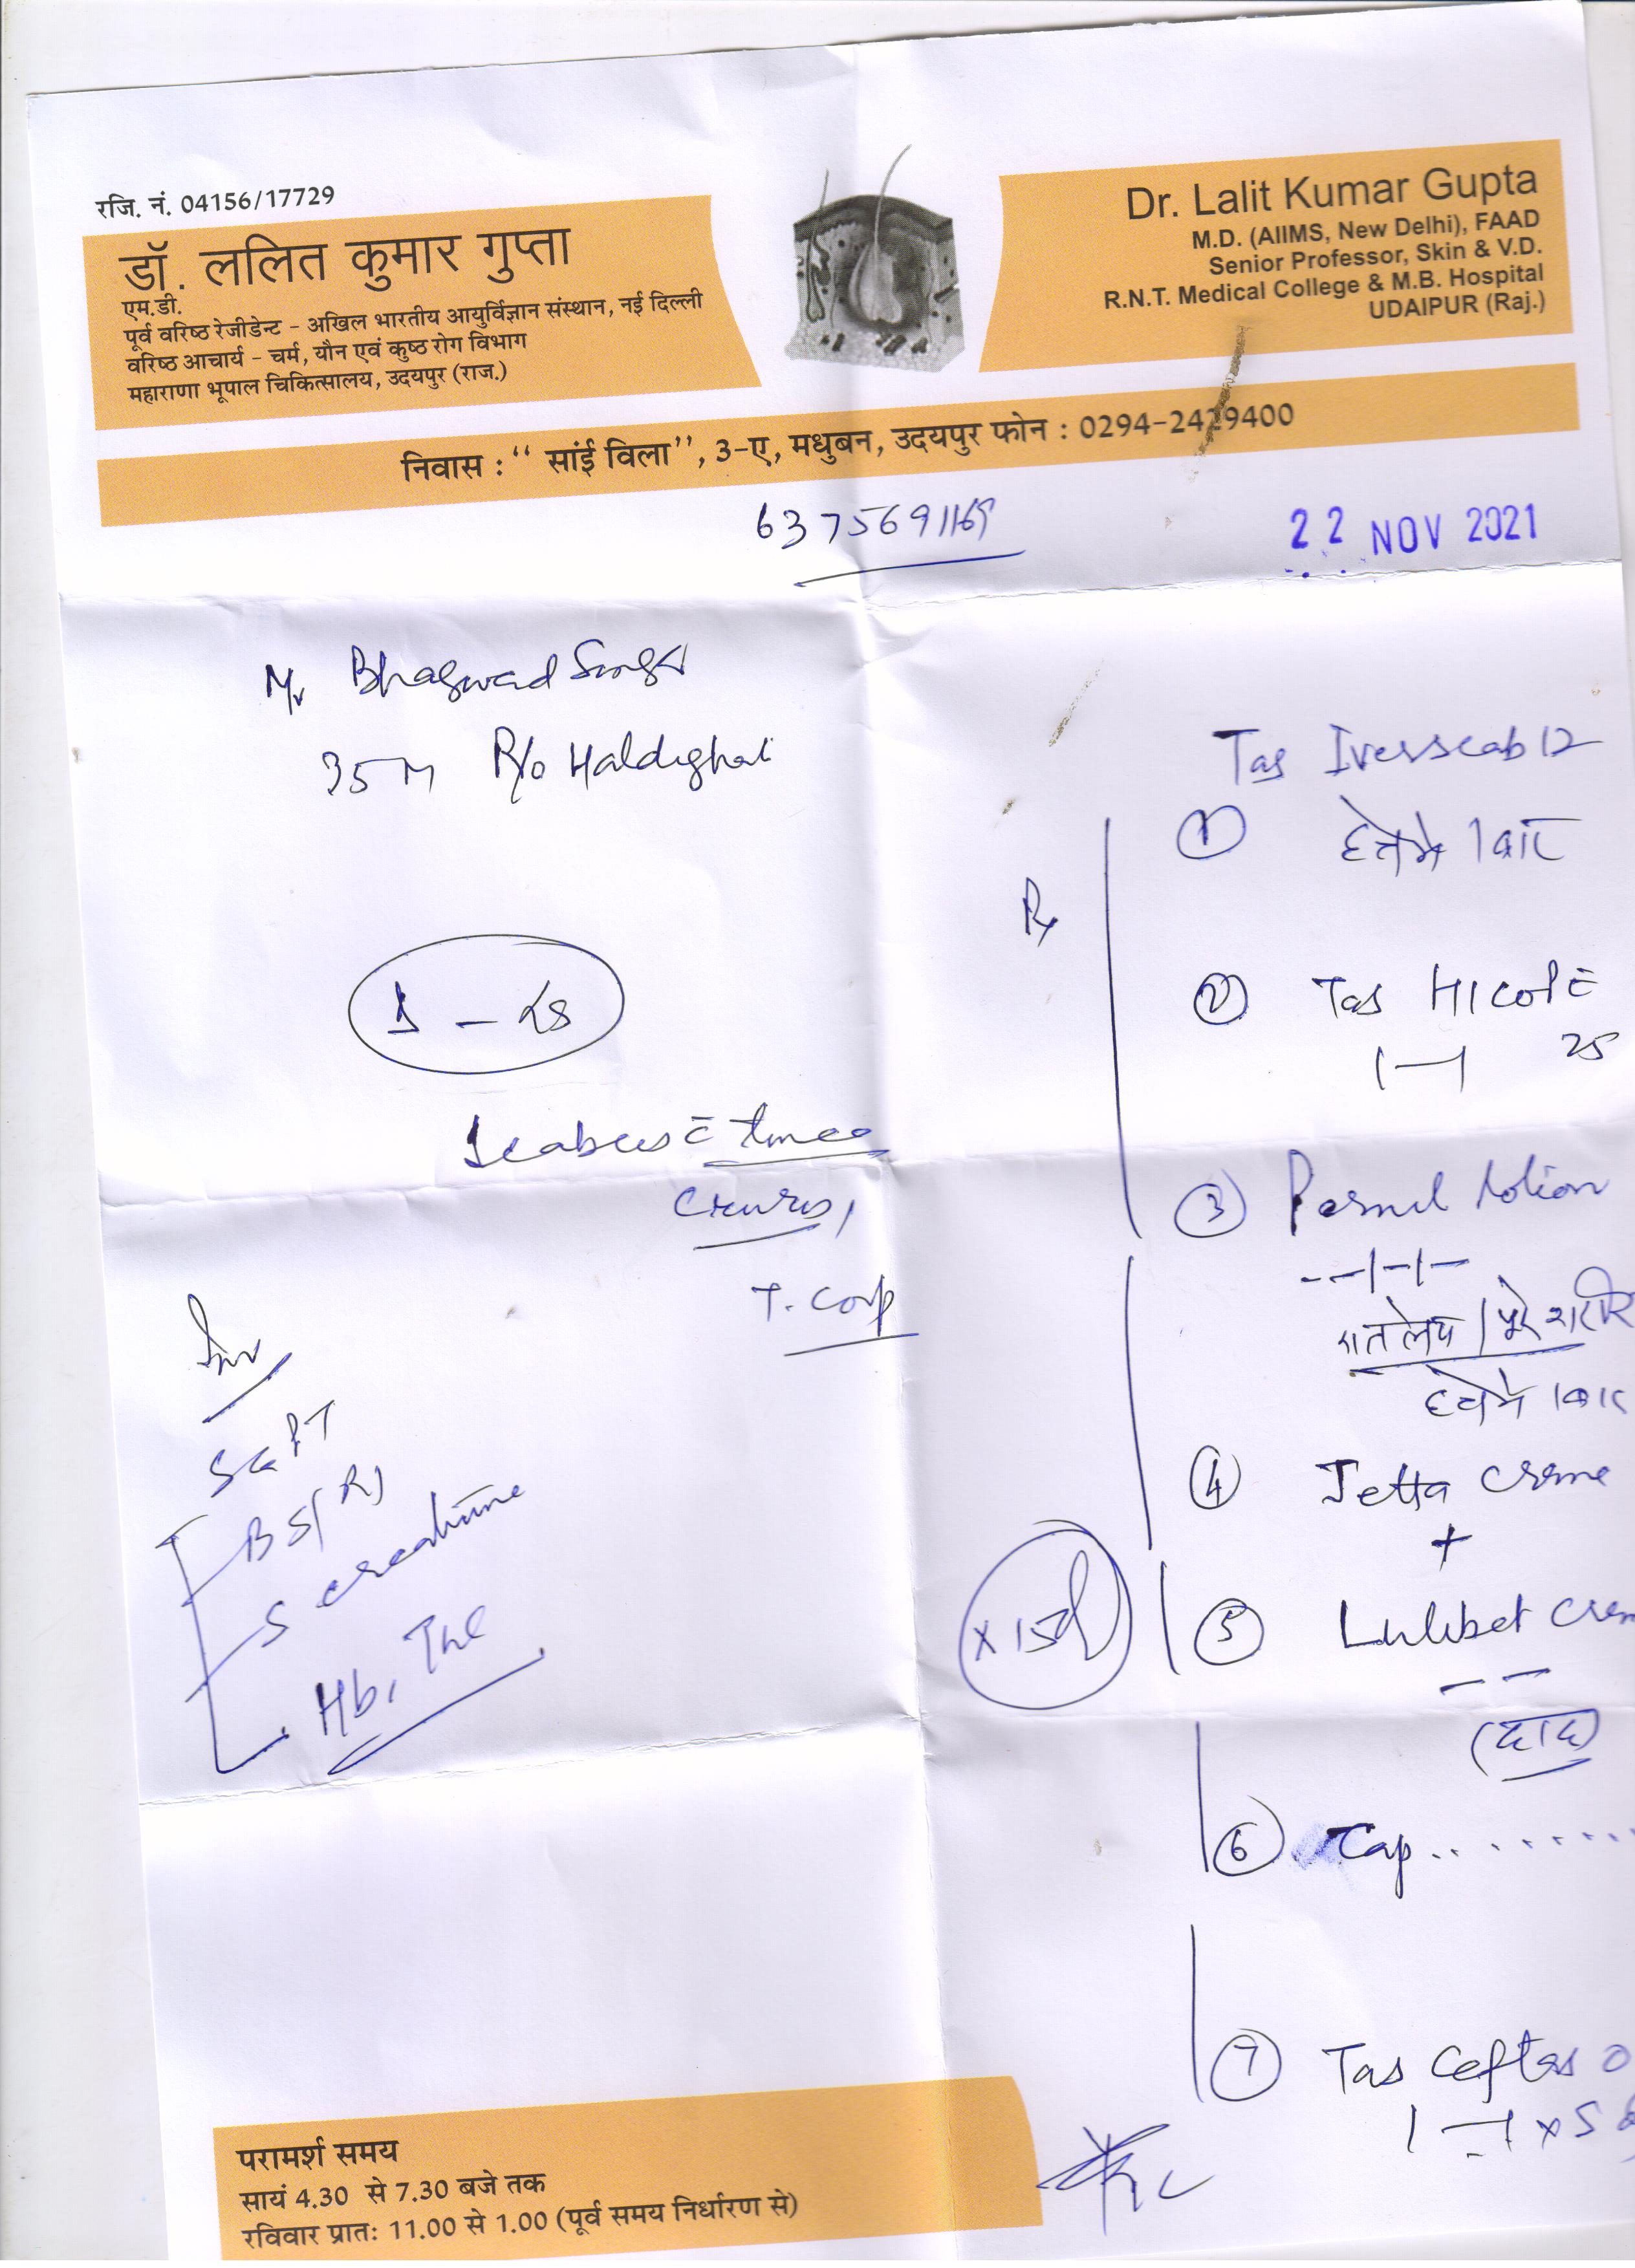 रजि. नं. 04156/17729
डॉ. ललित कुमार गुप्ता
एम.डी.
पूर्व वरिष्ठ रेजीडेन्ट – अखिल भारतीय आयुर्विज्ञान संस्थान, नई दिल्ली
वरिष्ठ आचार्य – चर्म, यौन एवं कुष्ठ रोग विभाग
महाराणा भूपाल चिकित्सालय, उदयपुर (राज.)
Dr. Lalit Kumar Gupta
M.D. (AIIMS, New Delhi), FAAD
Senior Professor, Skin & V.D.
R.N.T. Medical College & M.B. Hospital
UDAIPUR (Raj.)
निवास : “ सांई विला”, 3-ए, मधुबन, उदयपुर फोन : 0294-2429400
6375691169
22 NOV 2021
Mr Bhagwad Singh
35 M R/o Haldighati
T. Corp
Inv
SGPT
BS(R)
S creatinine
Hb, TLC
Rx
Tab Iverscab 12
1 हफ्ते में 1 बार
2 Tab
1–1 25
3 Permil lotion
रात लेप / पूरे शरीर
हफ्ते में 1 बार
4 Jetta Creme
+
x 15d
5 Lulibet Crem
(दाद)
6 Cap.........
7 Tab Ceftas O
1–1 x 5 d
परामर्श समय
सायं 4.30 से 7.30 बजे तक
रविवार प्रातः 11.00 से 1.00 (पूर्व समय निर्धारण से)